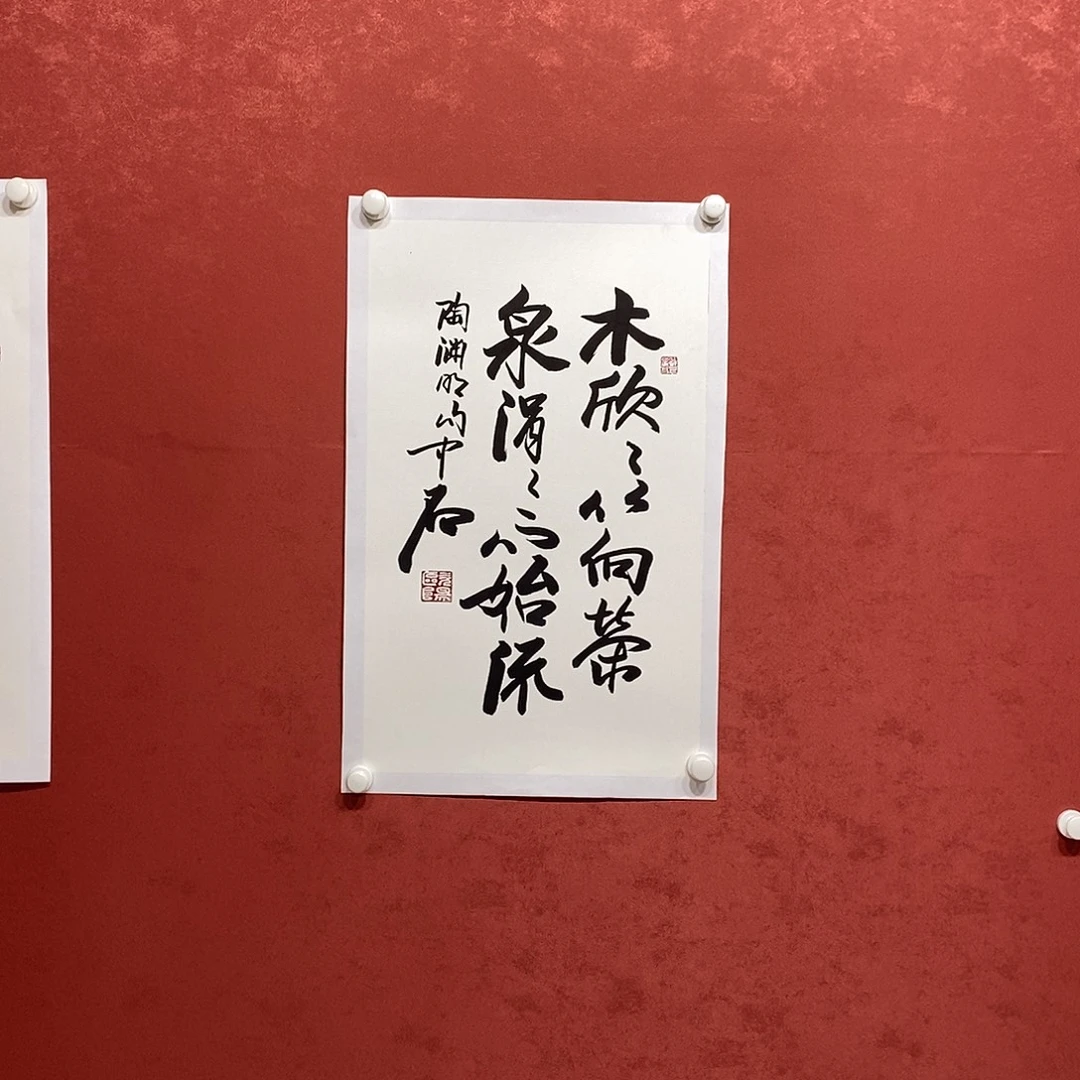 木欣〻以向荣
泉涓〻而始流
陶渊明句中石